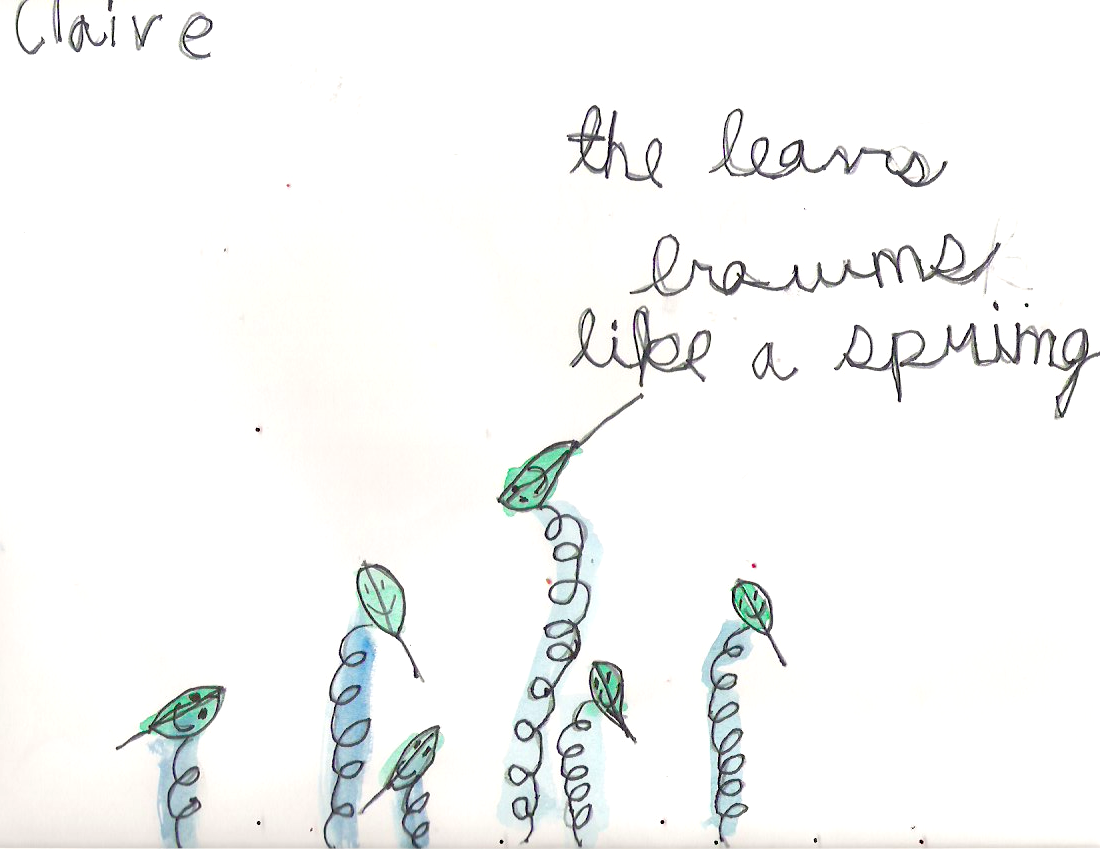 Claire
the leavs
brawms
like a spriing